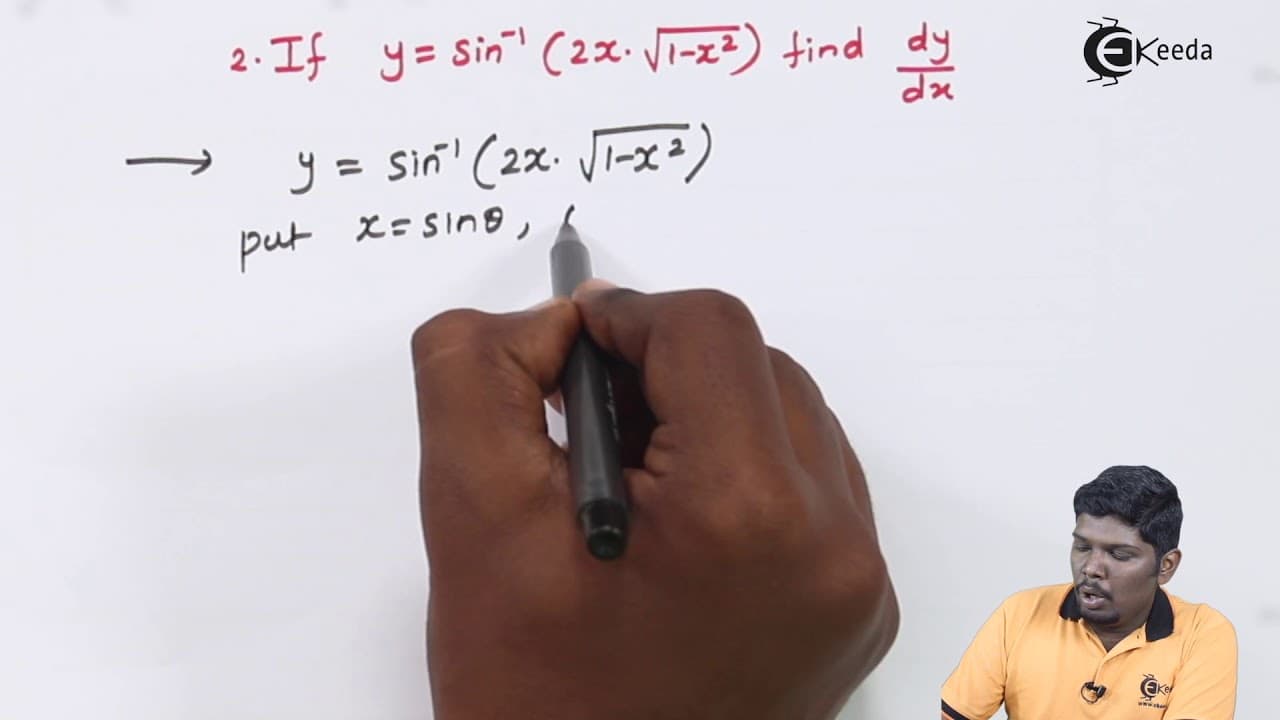 2. If y = sin⁻¹ (2x. √1-x²) find dy/dx
EKeeda
→ y = sin⁻¹ (2x. √1-x²)
put x = sinθ, (